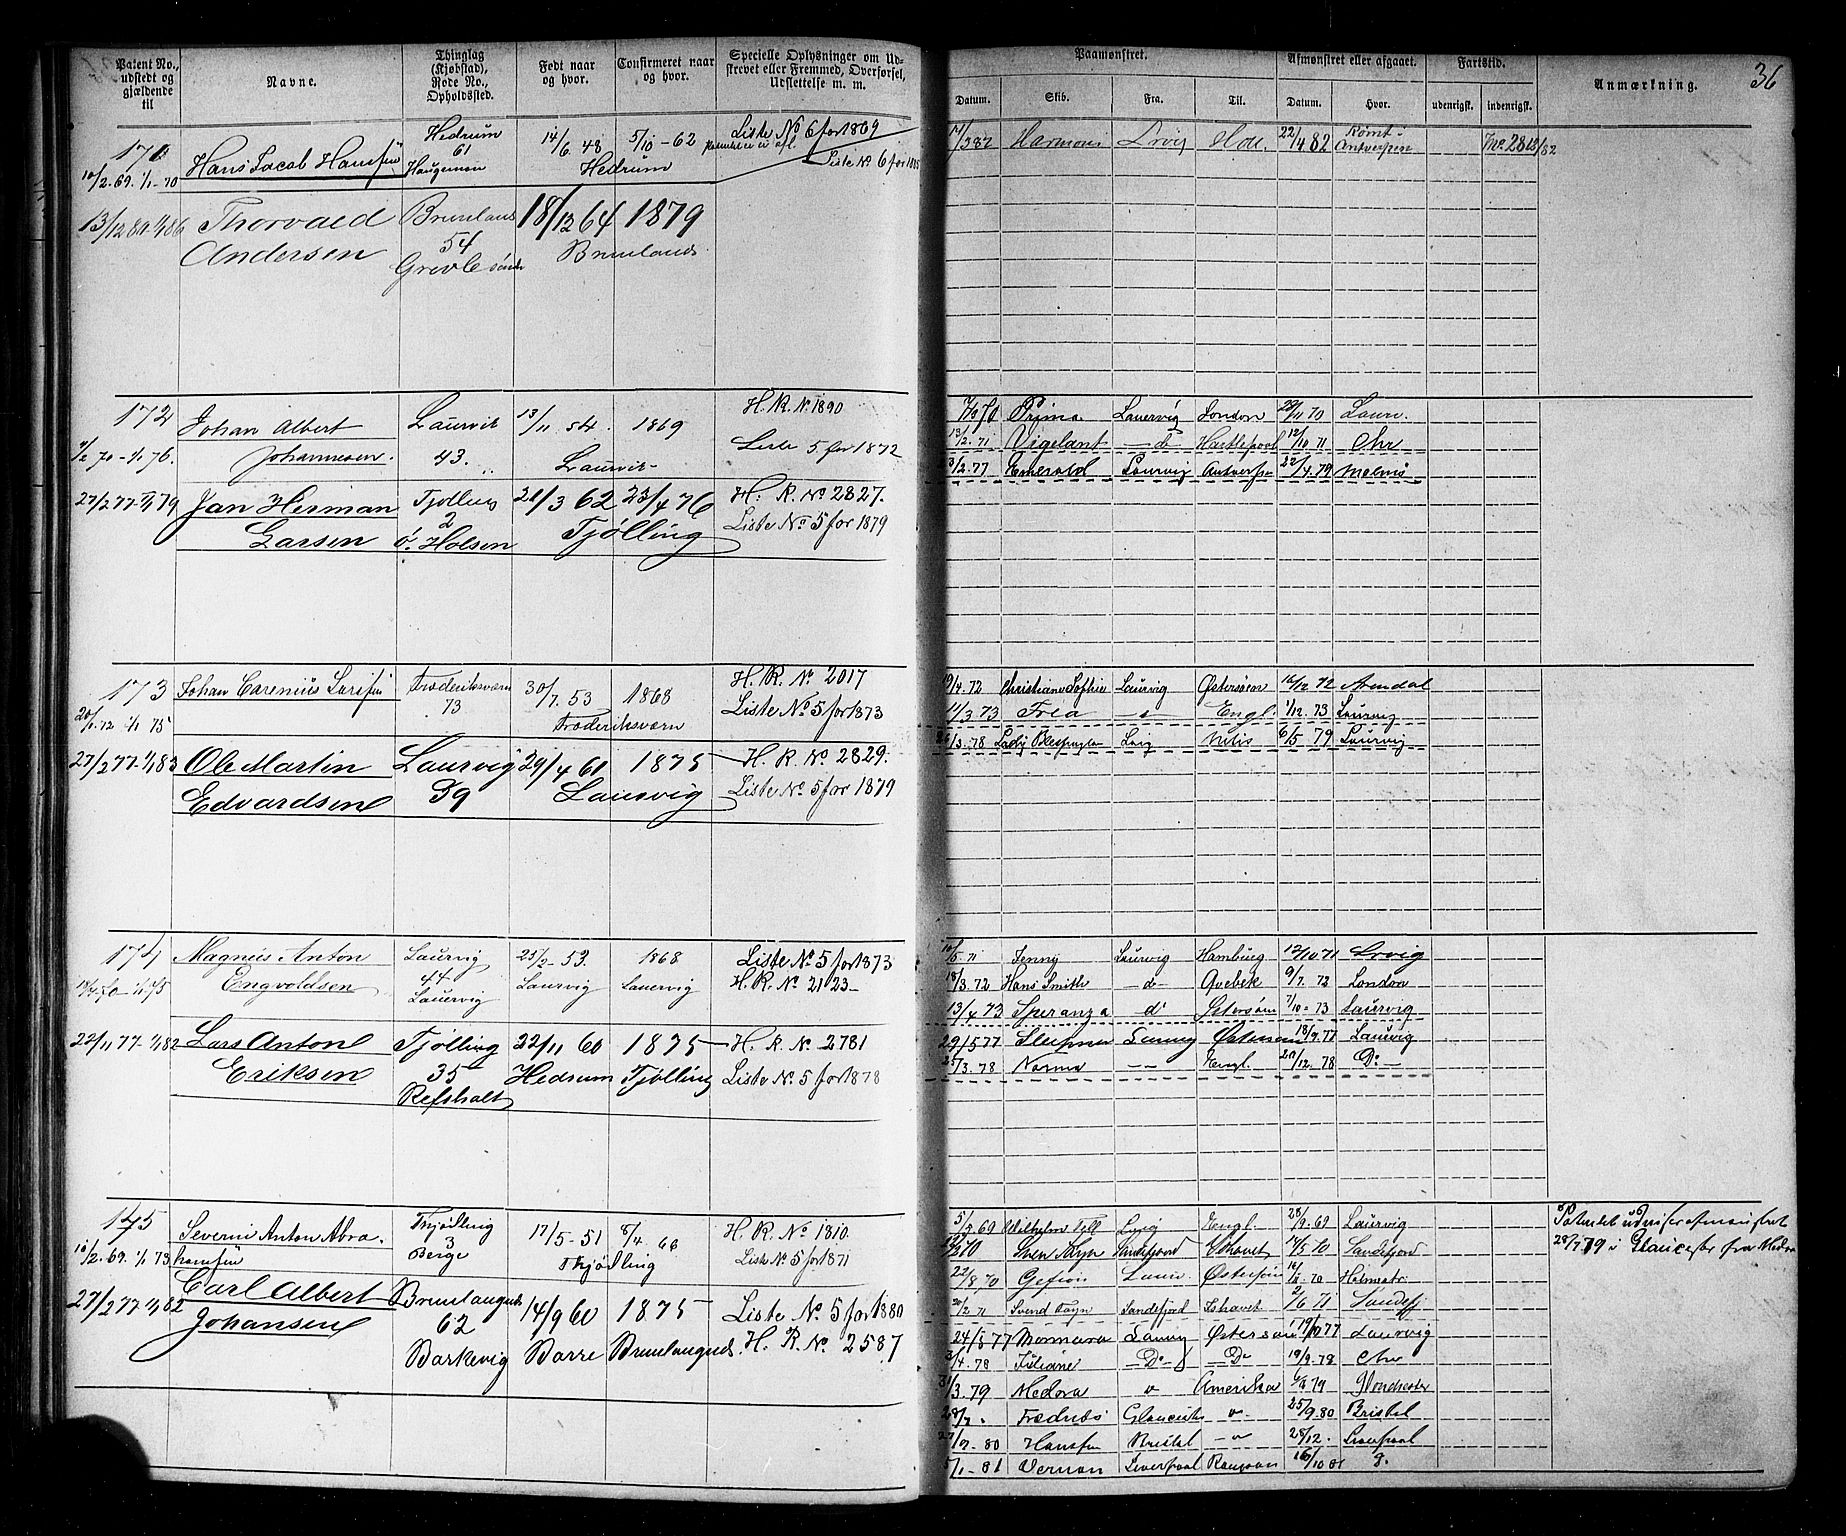 36
Patent No., udstedt og gjældende til
Navne.
Thinglag (Kjøbstad), Rode No., Opholdssted.
Født naar og hvor.
Confirmeret naar og hvor.
Specielle Oplysninger om Udskrevet eller Fremmed, Overførsel, Udslettelse m. m.
Paamønstret.
Afmønstret eller afgaaet.
Fartstid.
Anmærkning.
Datum. Skib. Fra. Til. Datum. Hvor. udenrigsk. indenrigsk.
Hans Jacob Hansen
Hedrum 61
14/6 48
5/10-62
Hedrum
Liste No 6 for 1869
Liste No 6 for
10/2.69. 1/1-70
22/4 82
Antverpen
Thorvald Andersen
54
18/12 64
1879
172
7/2 70-1/1 76.
Johan Albert Johannesen.
Laurvik 43.
13/11 54.
1869
Laurvik
H. R. No. 1890
Liste 5 for 1872
Prima Laurvig London 22/11 70 Laur.
13/2. 71 Vigelant -d- Hartlepool 12/10 71 Chr
23/2.77 Emerald Laurvig Antverpn 22/4.79 Malmø
27/2 77-1/1 79
Jan Herman Larsen
Tjølling 2
21/3 62
23/4 76
Tjølling
H. R. No 2827.
Liste No. 5 for 1879
173
20/1.72 1/1 75
Johan Carenius Larsen
Frederiksværn 73
30/7. 53
1868
Frederiksværn
H. R. No 2017
Liste No. 5 for 1873
19/4.72 Christiane Sofhie Laurvig Østersøen 16/12 72 Arendal
11/3 73 Frea Engl. 1/12. 73 Laurvig
26/3.78 Lady 6/5 79 Laurvig
27/2 77-1/1 83
Ole Martin Edvardsen
Laurvig 99
29/4 61
1875
Laurvig
H. R. No 2829.
Liste No. 5 for 1879
174
Magnus Anton Engvoldsen
Laurvig 44 Lauervig
25/2-53.
Laurvig
1868
Lauervig
Liste No. 5 for 1873
H. R. No 2123-
10/5 71 Jenny Laurvig Hamburg 12/10 71 Lrvig
18/3.72 Hans Smith -d- Qvebek 9/7. 72 London
13/4 73 Speranza d° Østersøen 7/10-73 Laurvig
29/5 77 Sleipner Laurvig Østersøen 18/9.77 Laurvig
25/3.78 Norma -- Engl. 20/12.78 D°-
22/11 77-1/1 82
Lars Anton Eriksen
Tjølling 35 Refsholt
22/11 60
Hedrum
1875
Tjølling
H. R. No 2781
Liste No. 5 for 1878
175
10/2.69. 1/1 73
Severin Anton Abrahamsen
Thjødling 3 Berge
17/5-51
8/4 66
Thjødling
H. R. No 1810.
Liste No 5 for 1871
5/7 69 Wilhelm Tell Lvig Engl. 28/9.69 Laurvig
Sven Foyn Sandefjord Ishavet 14/5 70 Sandefjord
22/8 70 Gefion Laur. Østersøen
20/2 71 Svend Foyn Sandefjord Ishavet 2/6 71 Sandefj
24/5 77 Marmara Laurvig Østersøen Laurvig
3/4.78 Juliane -D°- -D°- 19/9.78 Chr
31/3.79 Medora Amerika Glouchester
28/7. Glaucester 25/9.80 Bristol
27/9-80 Hansen Bristol 28/12. Liverpool
5/1-81 Vernon Liverpool Rangoon 16/10 81
28/7.79 i Glaucester fra Medora
27/2 77-1/1 82
Carl Albert Johansen
Brunlangnes 62 Barkevig
14/9 60
Barre
1875
Brunlangnes
Liste No. 5 for 1880
H. R. No 2587